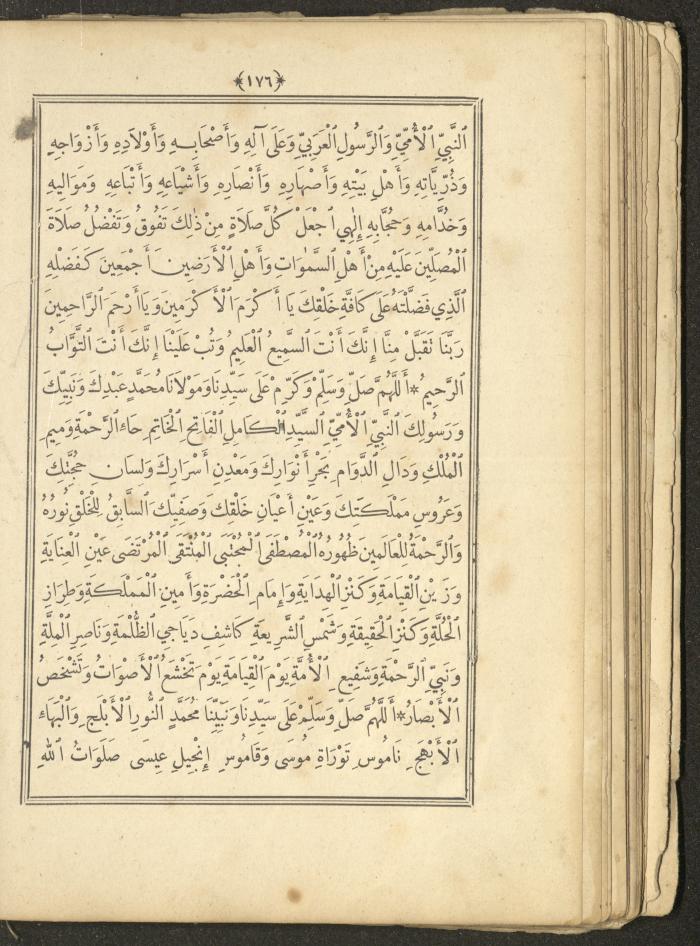 ﴿١٧٦﴾
النَّبِيِّ الْأُمِّيِّ وَالرَّسُولِ الْعَرَبِيِّ وَعَلَى آلِهِ وَأَصْحَابِهِ وَأَوْلَادِهِ وَأَزْوَاجِهِ
وَذُرِّيَّاتِهِ وَأَهْلِ بَيْتِهِ وَأَصْهَارِهِ وَأَنْصَارِهِ وَأَشْيَاعِهِ وَأَتْبَاعِهِ وَمَوَالِيهِ
وَخُدَّامِهِ وَحُجَّابِهِ إِلٰهِي اجْعَلْ كُلَّ صَلَاةٍ مِنْ ذٰلِكَ تَفُوقُ وَتَفْضُلُ صَلَاةَ
الْمُصَلِّينَ عَلَيْهِ مِنْ أَهْلِ السَّمٰوَاتِ وَأَهْلِ الْأَرَضِينَ أَجْمَعِينَ كَفَضْلِهِ
الَّذِي فَضَّلْتَهُ عَلَى كَافَّةِ خَلْقِكَ يَا أَكْرَمَ الْأَكْرَمِينَ وَيَا أَرْحَمَ الرَّاحِمِينَ
رَبَّنَا تَقَبَّلْ مِنَّا إِنَّكَ أَنْتَ السَّمِيعُ الْعَلِيمُ وَتُبْ عَلَيْنَا إِنَّكَ أَنْتَ التَّوَّابُ
الرَّحِيمُ * أَللّٰهُمَّ صَلِّ وَسَلِّمْ وَكَرِّمْ عَلَى سَيِّدِنَا وَمَوْلَانَا مُحَمَّدٍ عَبْدِكَ وَنَبِيِّكَ
وَرَسُولِكَ النَّبِيِّ الْأُمِّيِّ السَّيِّدِ الْكَامِلِ الْفَاتِحِ الْخَاتِمِ حَاءِ الرَّحْمَةِ وَمِيمِ
الْمُلْكِ وَدَالِ الدَّوَامِ بَحْرِ أَنْوَارِكَ وَمَعْدِنِ أَسْرَارِكَ وَلِسَانِ حُجَّتِكَ
وَعَرُوسِ مَمْلَكَتِكَ وَعَيْنِ أَعْيَانِ خَلْقِكَ وَصَفِيِّكَ السَّابِقُ لِلْخَلْقِ نُورُهُ
وَالرَّحْمَةُ لِلْعَالَمِينَ ظُهُورُهُ الْمُصْطَفَى الْمُجْتَبَى الْمُنْتَقَى الْمُرْتَضَى عَيْنِ الْعِنَايَةِ
وَزَيْنِ الْقِيَامَةِ وَكَنْزِ الْهِدَايَةِ وَإِمَامِ الْحَضْرَةِ وَأَمِينِ الْمَمْلَكَةِ وَطِرَازِ
الْحُلَّةِ وَكَنْزِ الْحَقِيقَةِ وَشَمْسِ الشَّرِيعَةِ كَاشِفِ دَيَاجِي الظُّلْمَةِ وَنَاصِرِ الْمِلَّةِ
وَنَبِيِّ الرَّحْمَةِ وَشَفِيعِ الْأُمَّةِ يَوْمَ الْقِيَامَةِ يَوْمَ تَخْشَعُ الْأَصْوَاتُ وَتَشْخَصُ
الْأَبْصَارُ * أَللّٰهُمَّ صَلِّ وَسَلِّمْ عَلَى سَيِّدِنَا وَنَبِيِّنَا مُحَمَّدٍ النُّورِ الْأَبْلَجِ وَالْبَهَاءِ
الْأَبْهَجِ نَامُوسِ تَوْرَاةِ مُوسَى وَقَامُوسِ إِنْجِيلِ عِيسَى صَلَوَاتُ اللّٰهِ